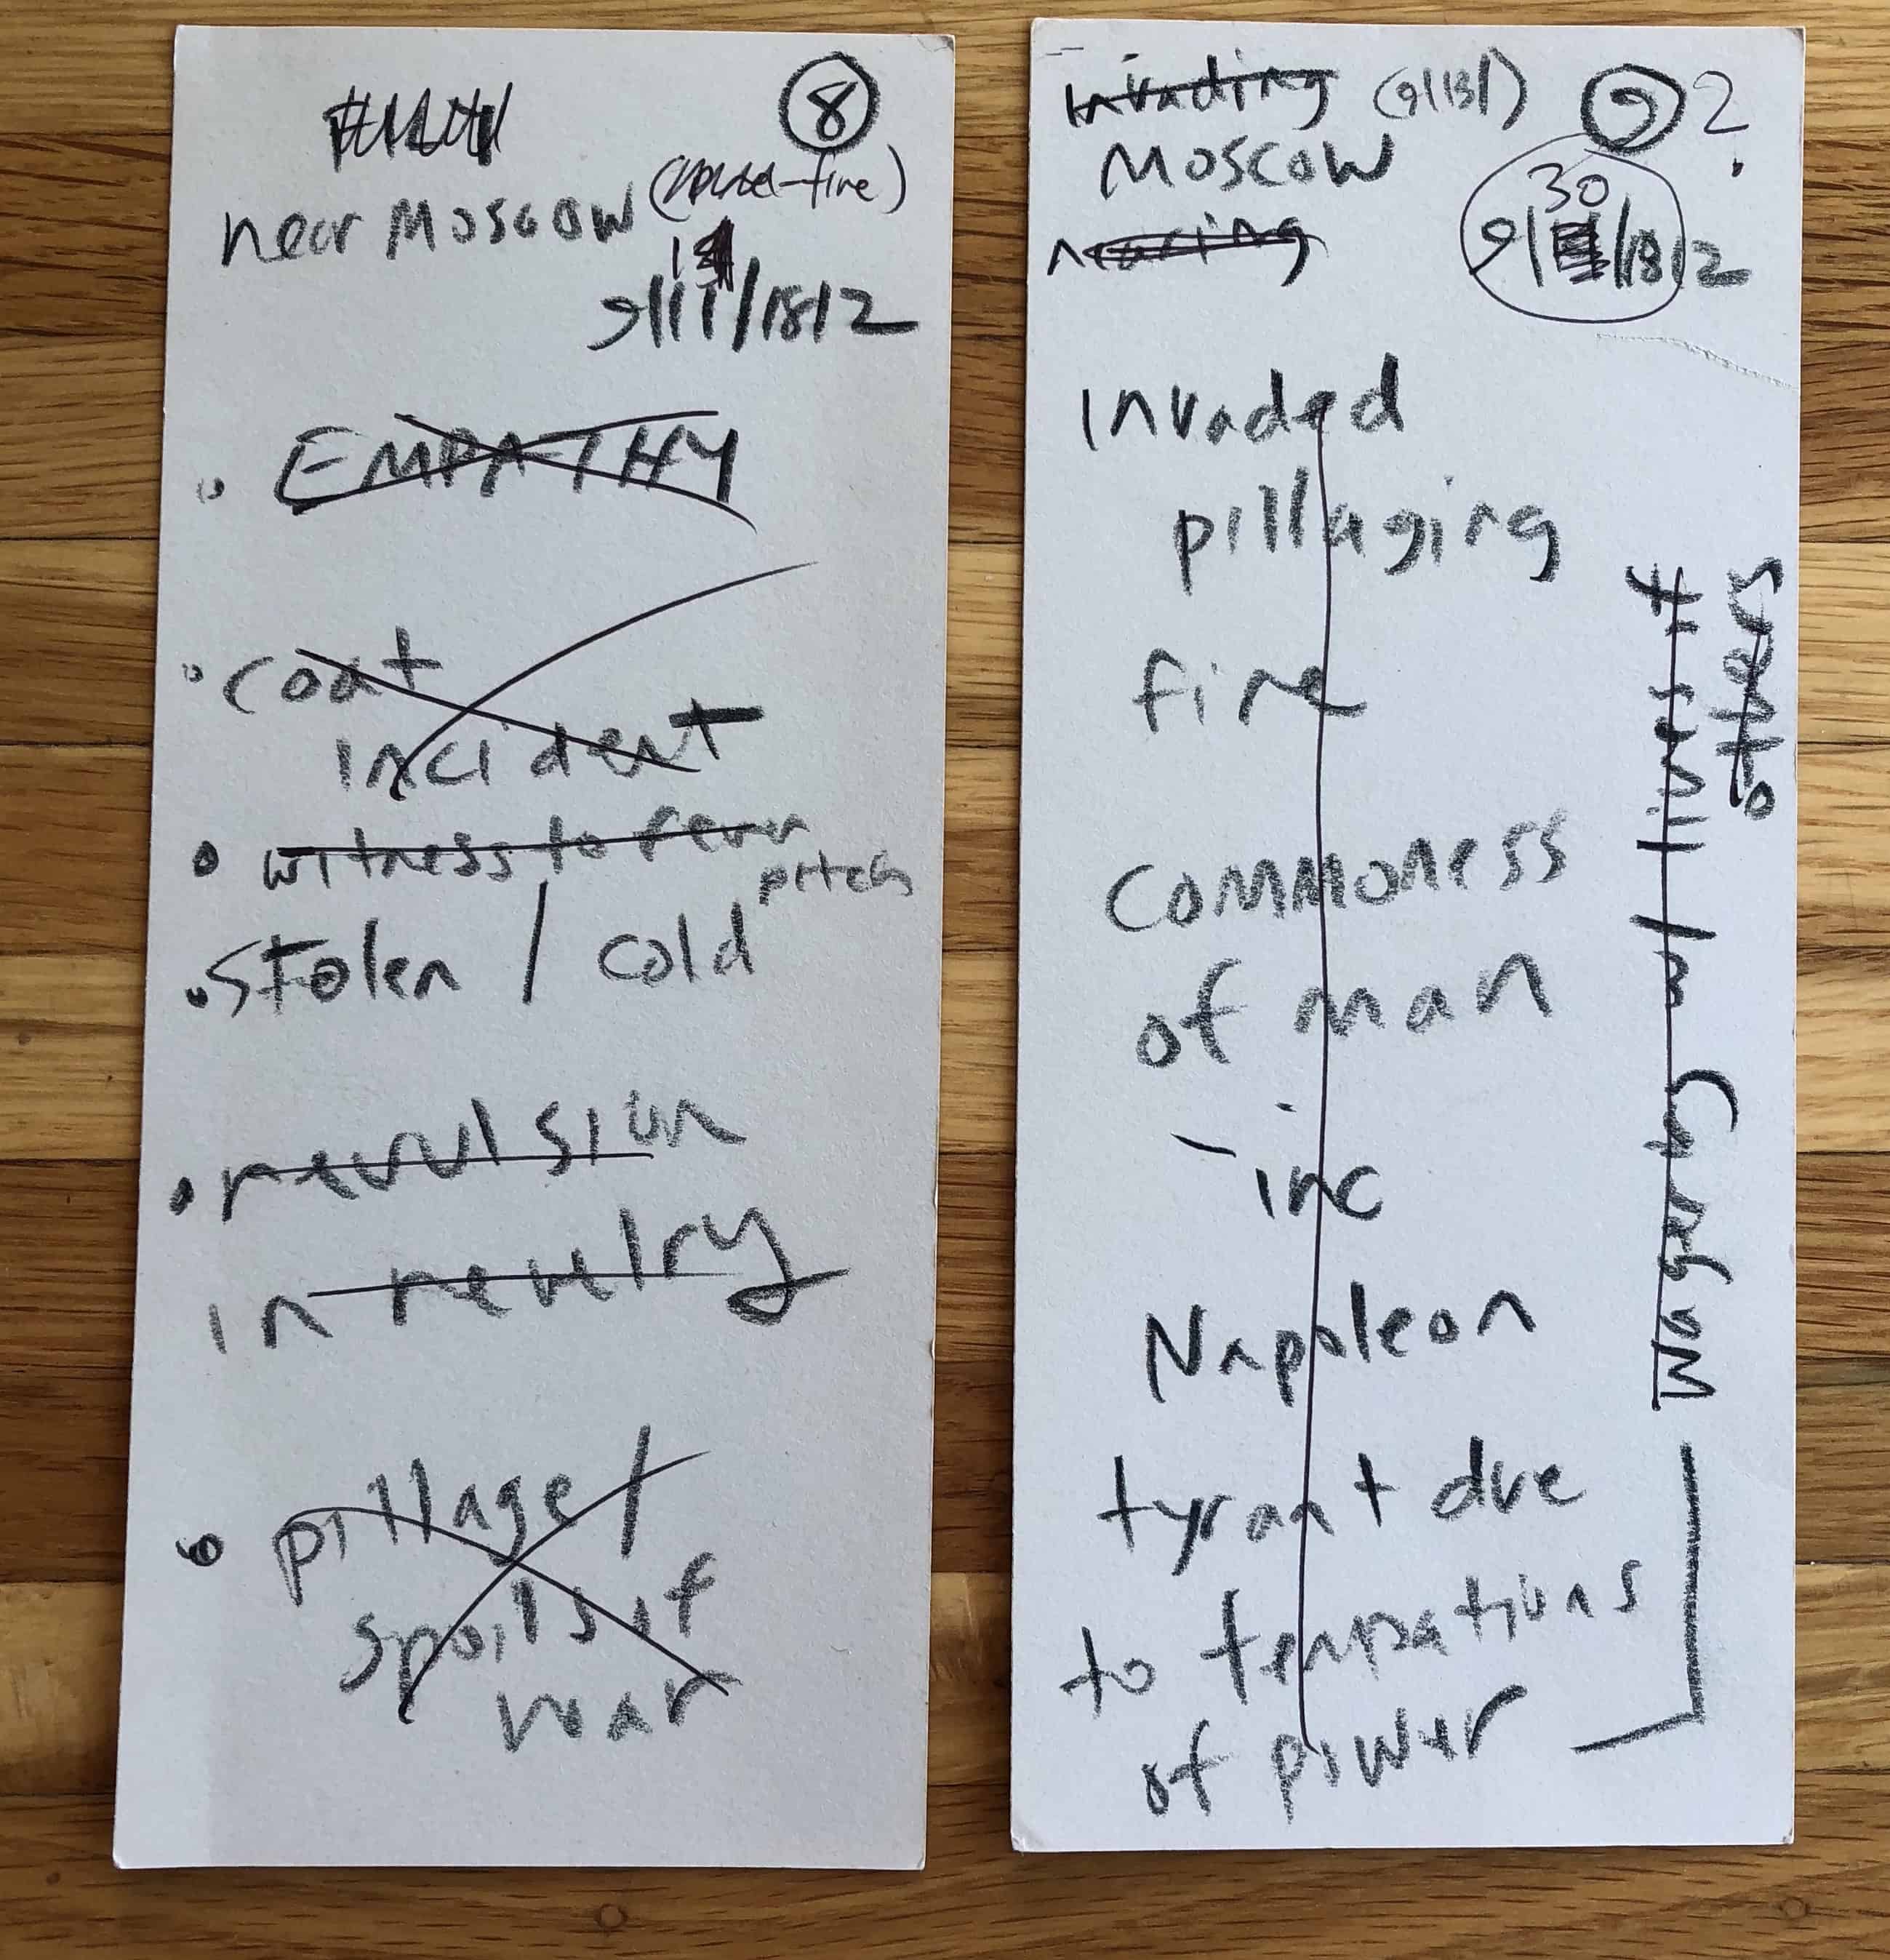 8
near Moscow
9/11/1812
EMPATHY
coat
incident
witness to
pitch
stolen / cold
revulsion
in revelry
pillage/
spoils of
war
invading
9
?
Moscow
30
nearing
9/ /1812
invaded
pillaging
fire
commoness
of man
- inc
Napoleon
tyrant due
to tempations
of power